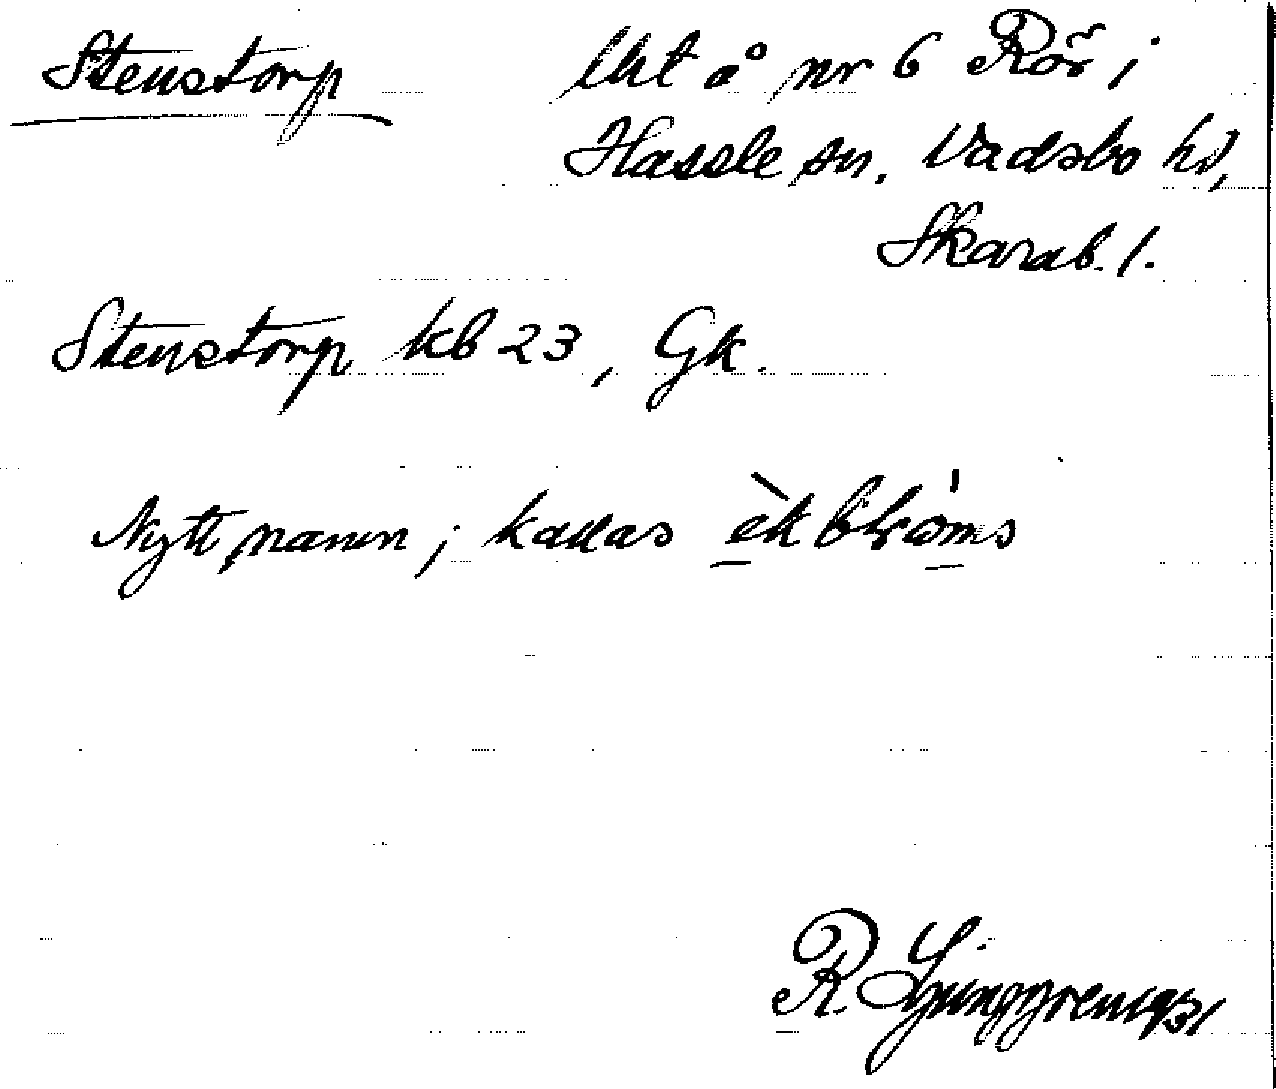 Stenstorp lht å nr 6 Rör i
Hassle sn. Vadsbo hd,
Skarab. l.
Stenstorp kb 23, Gk.
Nytt namn; kallas èkbltröms
R. Ljunggren 1931